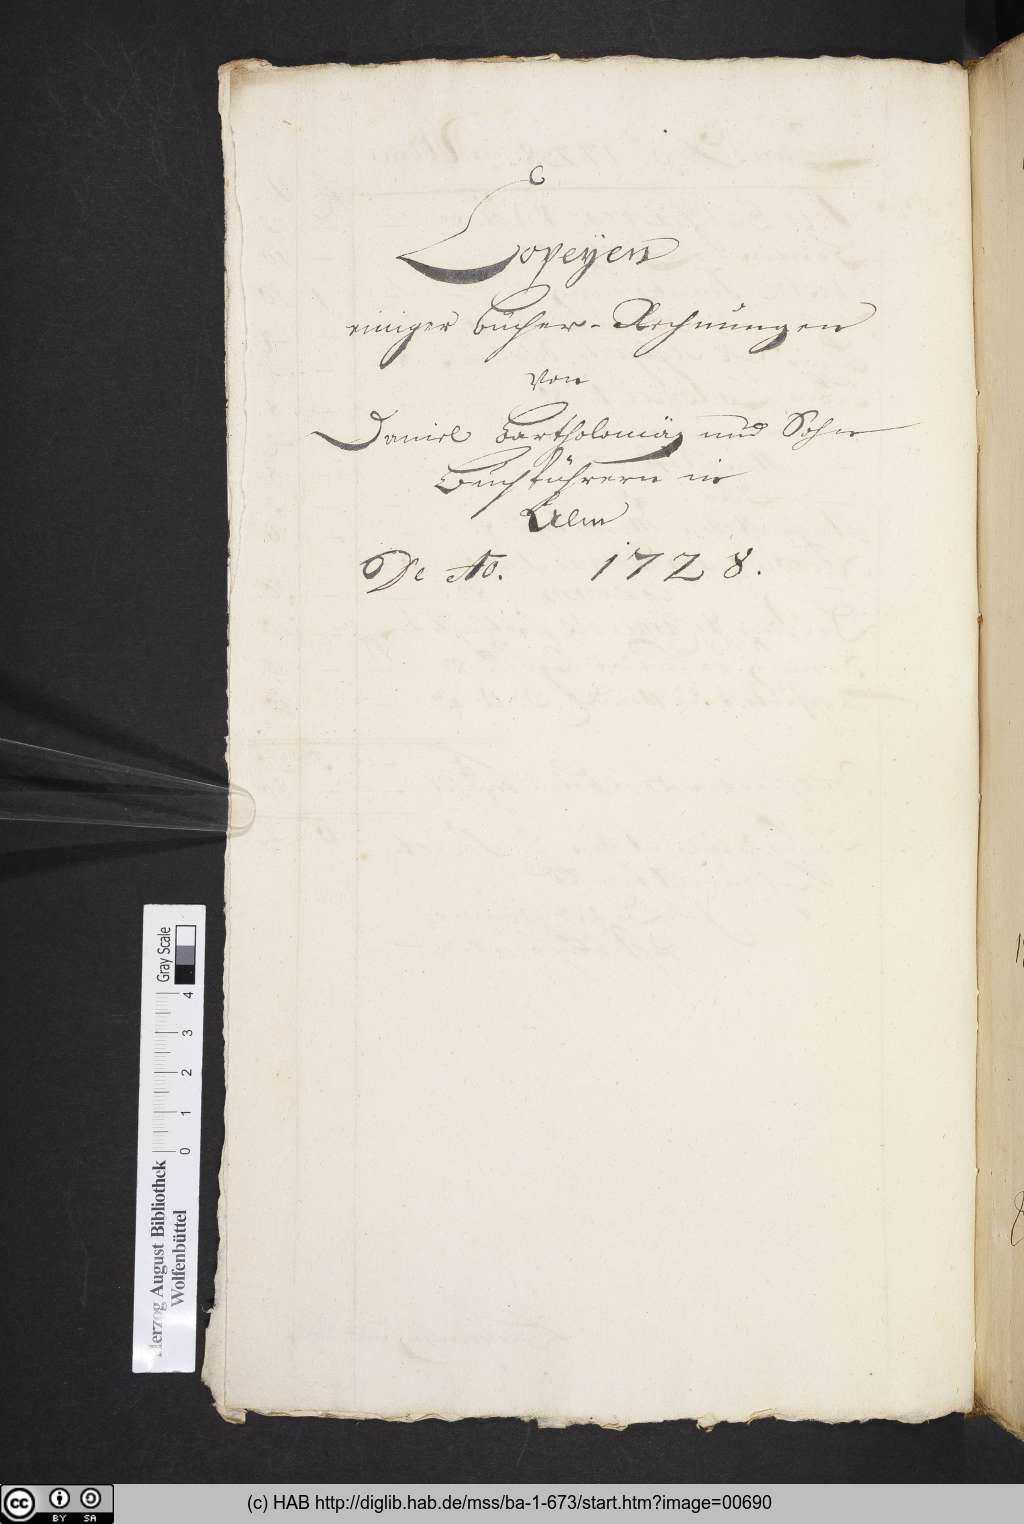 Copeyen
einiger Bücher-Rechnungen
von
Daniel Bartholomä und Sohn
Buchführern in
Ulm
De Ao. 1728.
Gray Scale
0 1 2 3 4
Herzog August Bibliothek
Wolfenbüttel
(c) HAB http://diglib.hab.de/mss/ba-1-673/start.htm?image=00690
cc BY SA